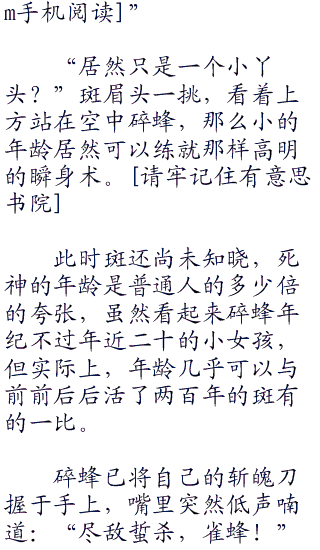 m手机阅读]”
“居然只是一个小丫
头？”斑眉头一挑，看着上
方站在空中碎蜂，那么小的
年龄居然可以练就那样高明
的瞬身术。[请牢记住有意思
书院]
此时斑还尚未知晓，死
神的年龄是普通人的多少倍
的夸张，虽然看起来碎蜂年
纪不过年近二十的小女孩，
但实际上，年龄几乎可以与
前前后后活了两百年的斑有
的一比。
碎蜂已将自己的斩魄刀
握于手上，嘴里突然低声喃
道：“尽敌蜇杀，雀蜂！”